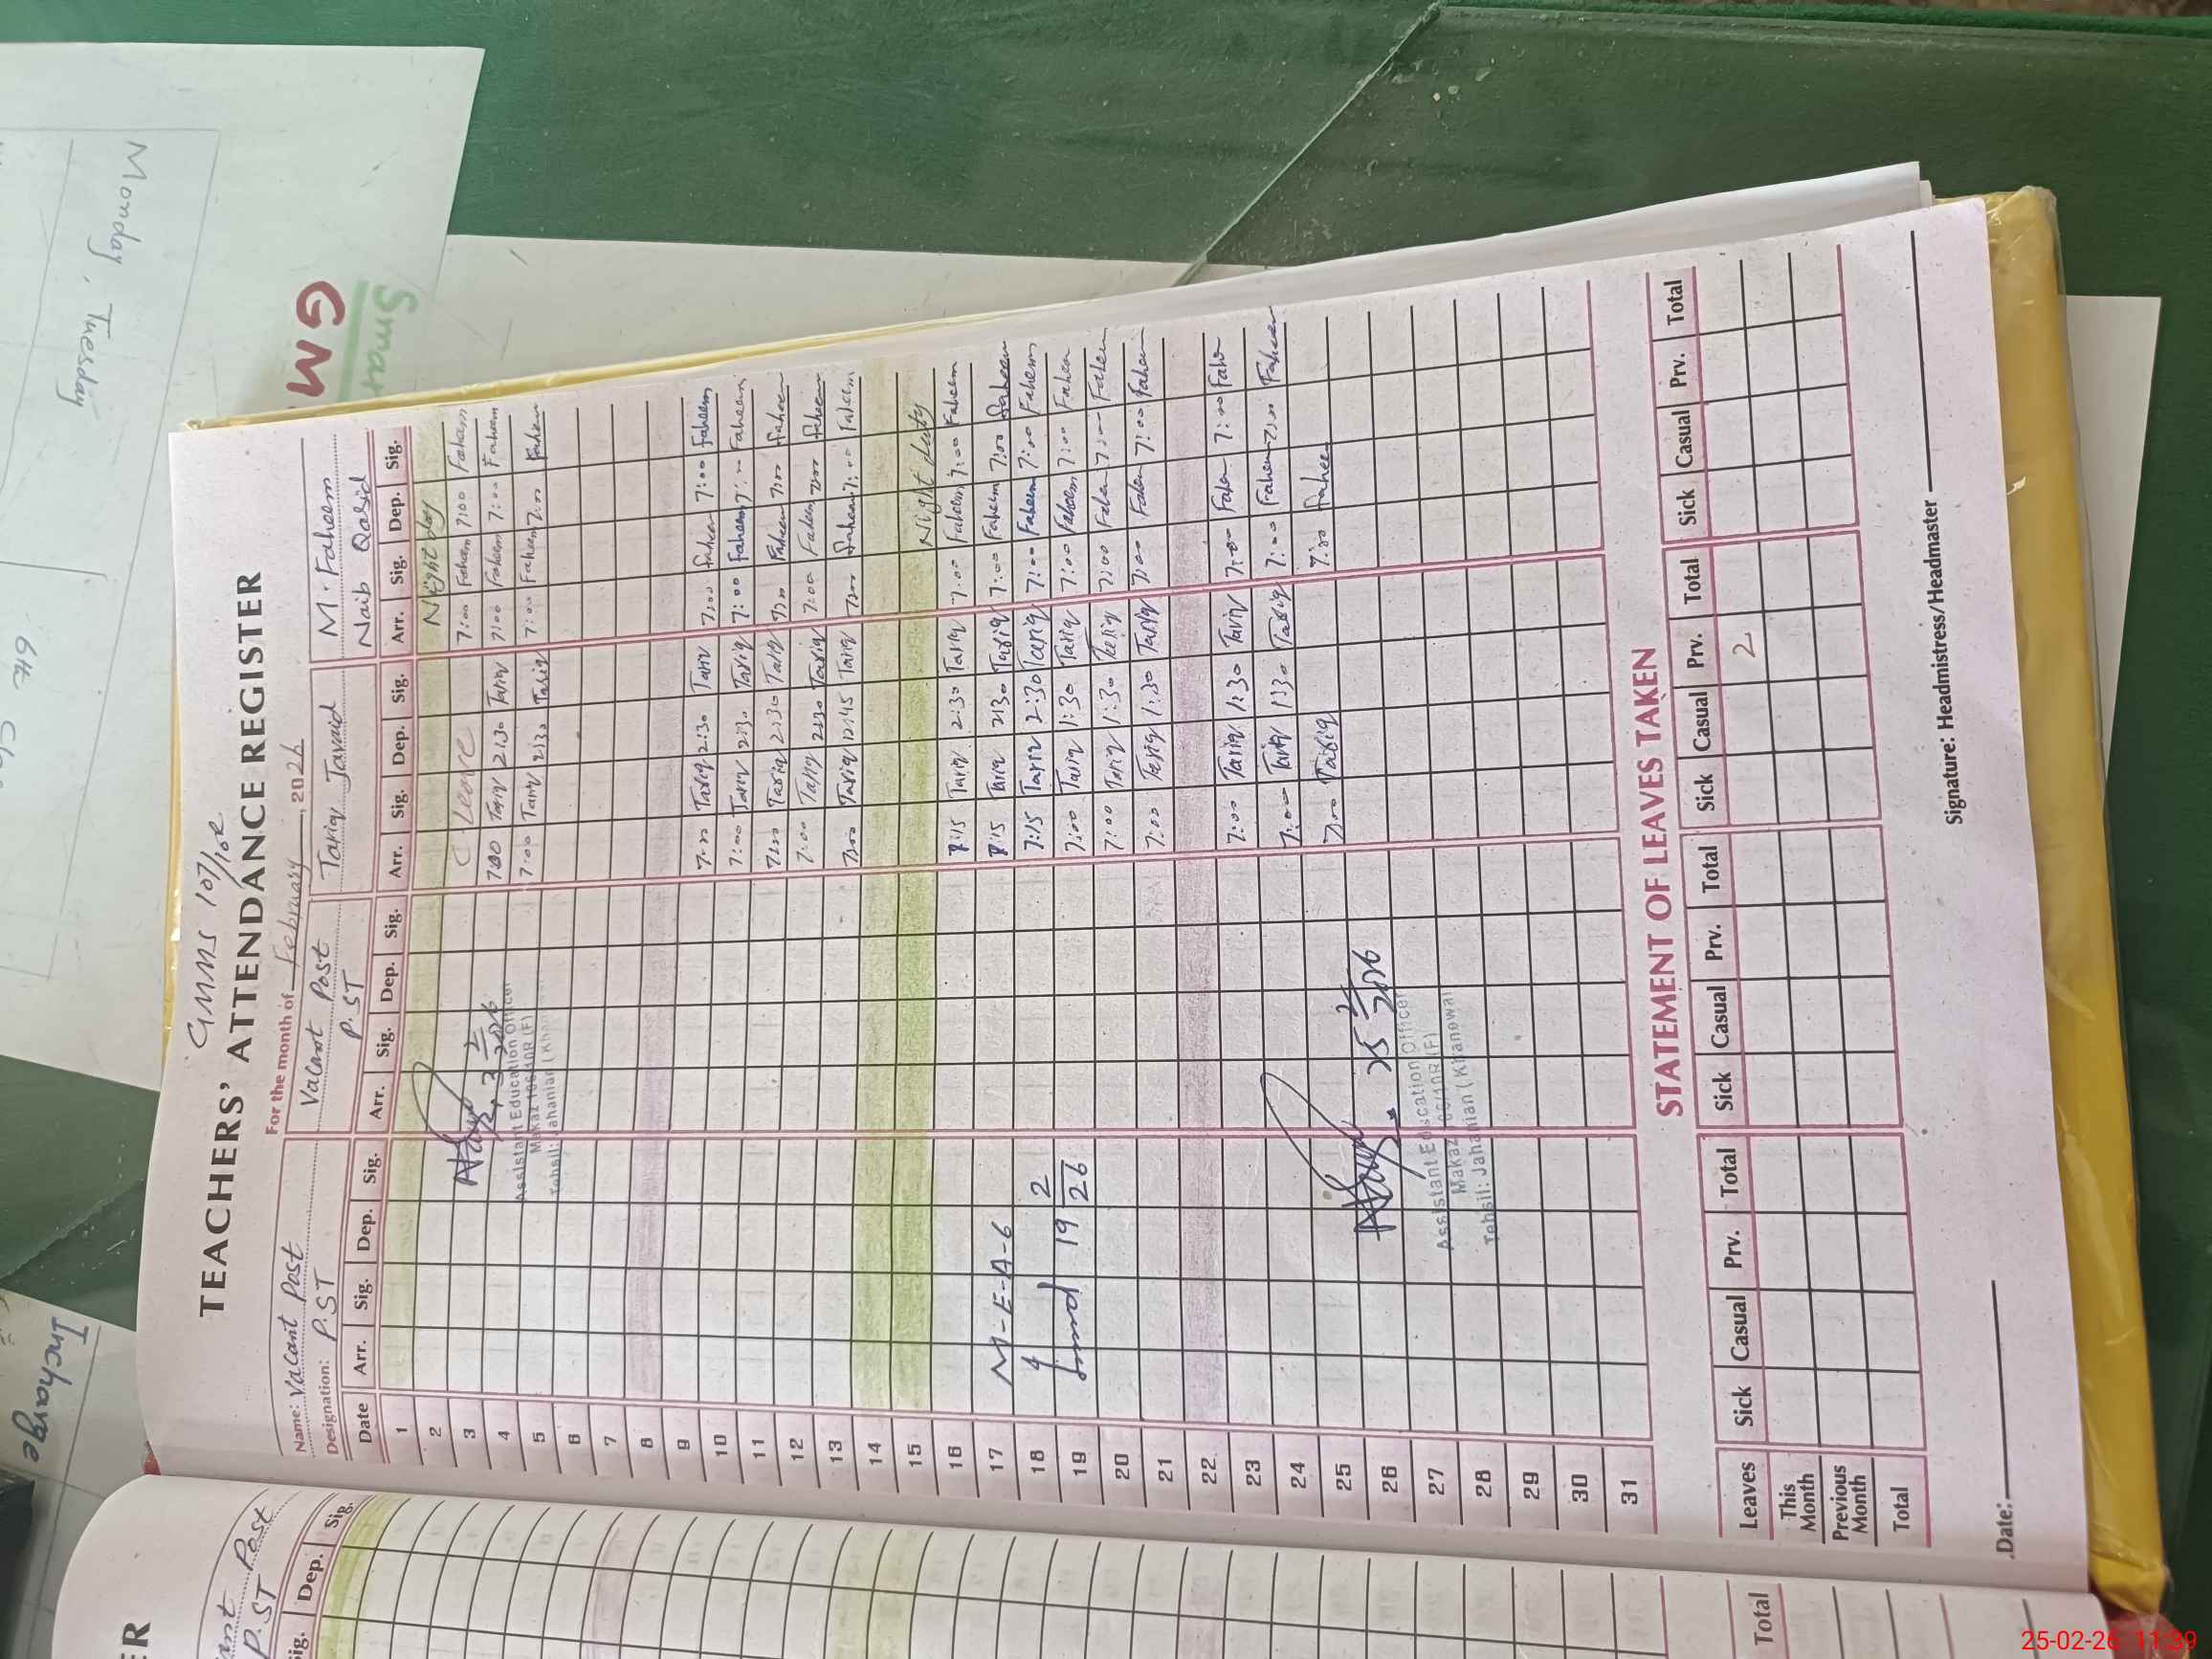 GMMS 107/10R
TEACHERS' ATTENDANCE REGISTER
For the month of February, 2026
Name: Vacant Post Vacant Post Tariq Javaid M. Faheem
Designation: P.ST P.ST Naib Qasid
Date Arr. Sig. Dep. Sig. Arr. Sig. Dep. Sig. Arr. Sig. Dep. Sig. Arr. Sig. Dep. Sig.
1
2 Night
3 C Leave 7:00 Faheem 7:00 Faheem
4 7:00 Tariq 2:30 Tariq 7:00 Faheem 7:00 Faheem
5 7:00 Tariq 2:30 Tariq 7:00 Faheem 7:00 Faheem
3 2 2026
Assistant Education Officer
Tehsil: Jahanian
6
7
8
9
10 7:00 Tariq 2:30 Tariq 7:00 Faheem 7:00 Faheem
11 7:00 Tariq 2:30 Tariq 7:00 Faheem 7:00 Faheem
12 7:00 Tariq 2:30 Tariq 7:00 Faheem 7:00 Faheem
13 7:00 Tariq 2:30 Tariq 7:00 Faheem 7:00 Faheem
14 7:00 Tariq 12:45 Tariq 7:00 Faheem 7:00 Faheem
15
16 Night duty
17 Tariq 2:30 Tariq 7:00 Faheem 7:00 Faheem
M-E-A-6
18 Tariq 2:30 Tariq 7:00 Faheem 7:00 Faheem
19 7:15 Tariq 2:30 Tariq 7:00 Faheem 7:00 Faheem
19 2 26
20 7:00 Tariq 1:30 Tariq 7:00 Faheem 7:00 Faheem
21 7:00 Tariq 1:30 Tariq 7:00 Faheem 7:00 Faheem
22 7:00 Tariq 1:30 Tariq 7:00 Faheem 7:00 Faheem
23 7:00 Tariq 1:30 Tariq 7:00 Faheem 7:00
24 7:00 Tariq 1:30 Tariq 7:00 Faheem 7:00 Faheem
25 7:00 Tariq 7:00 Faheem
26
25 2 2026
27
28
29
30
31
Assistant Education Officer
Makaz 106/10R (F)
Tehsil: Jahanian (Khanewal
STATEMENT OF LEAVES TAKEN
Leaves Sick Casual Prv. Total Sick Casual Prv. Total Sick Casual Prv. Total Sick Casual Prv. Total
This Month 2
Previous Month
Total
Date: Signature: Headmistress/Headmaster
ER
Post
P.ST
Sig. Dep. Sig.
Total
Monday, Tuesday
6th
Smar
GM
Incharge
25-02-26 11:39